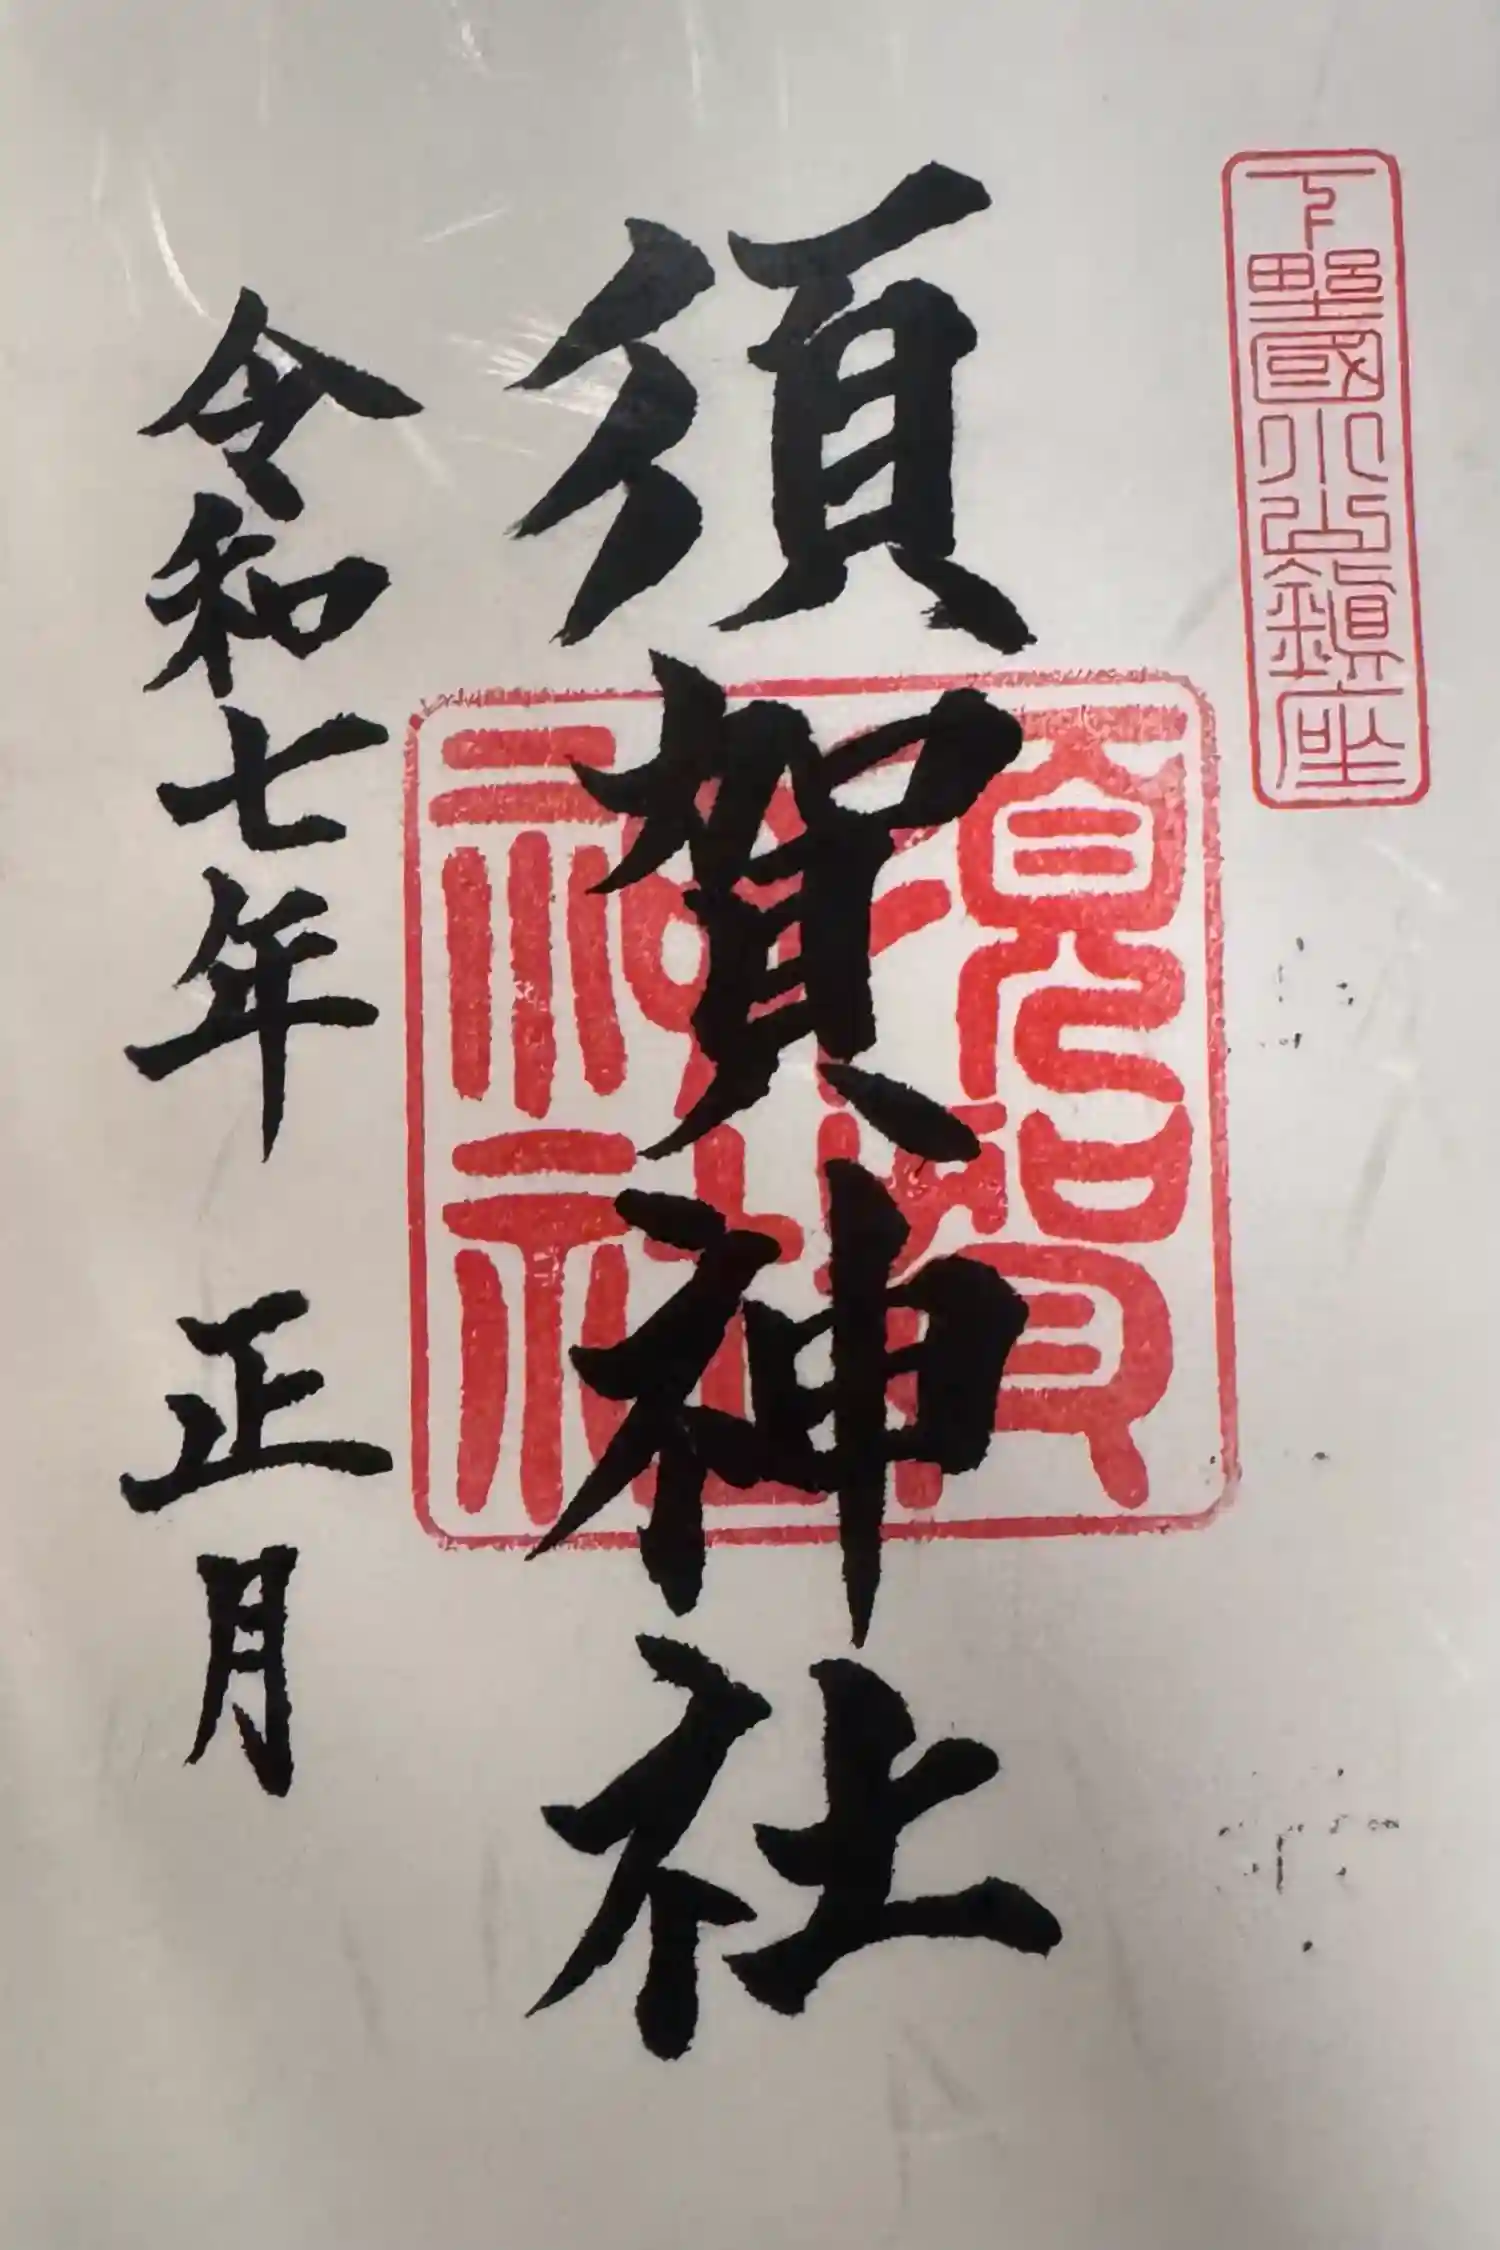 下野國小山鎮座
須賀神社
須賀
神社
令和七年 正月